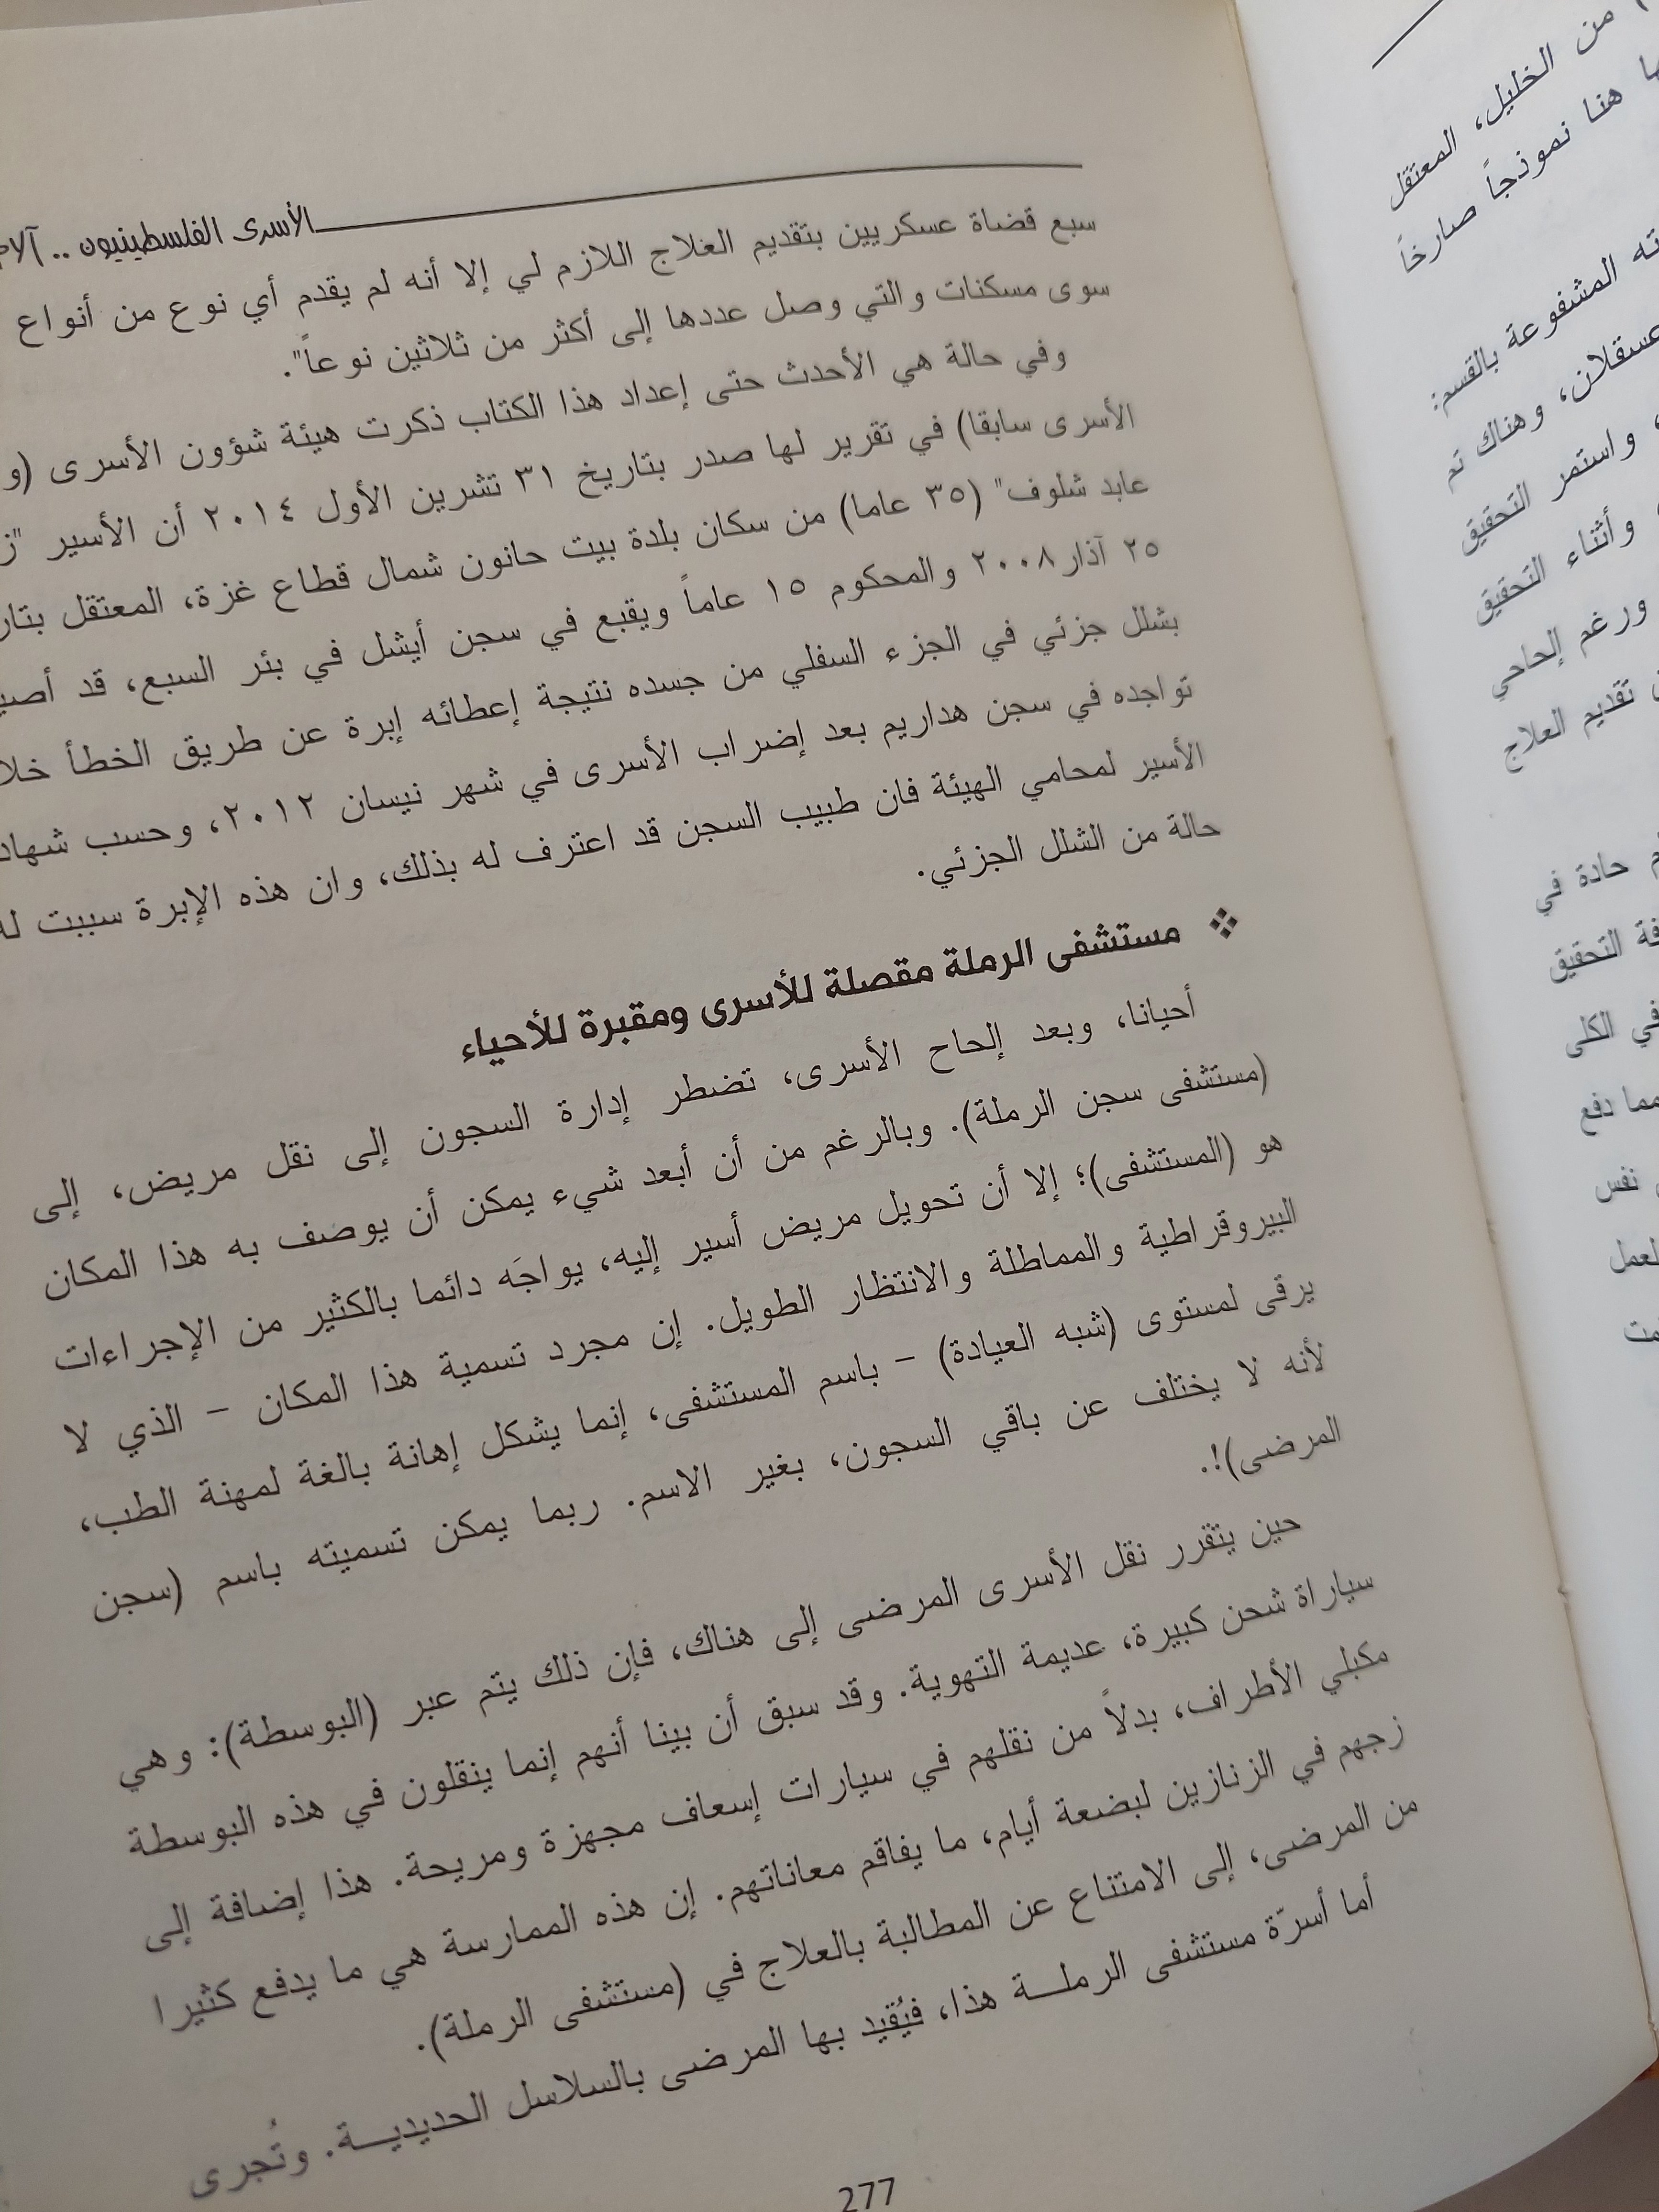 الأسرى الفلسطينيون .. آلام
سبع قضاة عسكريين بتقديم العلاج اللازم لي إلا أنه لم يقدم أي نوع من أنواع
سوى مسكنات والتي وصل عددها إلى أكثر من ثلاثين نوعاً".
وفي حالة هي الأحدث حتى إعداد هذا الكتاب ذكرت هيئة شؤون الأسرى (و
الأسرى سابقا) في تقرير لها صدر بتاريخ ٣١ تشرين الأول ٢٠١٤ أن الأسير "ز
عابد شلوف" (٣٥ عاما) من سكان بلدة بيت حانون شمال قطاع غزة، المعتقل بتار
٢٥ آذار٢٠٠٨ والمحكوم ١٥ عاماً ويقبع في سجن أيشل في بئر السبع، قد أصي
بشلل جزئي في الجزء السفلي من جسده نتيجة إعطائه إبرة عن طريق الخطأ خلا
تواجده في سجن هداريم بعد إضراب الأسرى في شهر نيسان ٢٠١٢، وحسب شهاد
الأسير لمحامي الهيئة فان طبيب السجن قد اعترف له بذلك، وان هذه الإبرة سببت له
حالة من الشلل الجزئي.
❖ مستشفى الرملة مقصلة للأسرى ومقبرة للأحياء
أحيانا، وبعد إلحاح الأسرى، تضطر إدارة السجون إلى نقل مريض، إلى
(مستشفى سجن الرملة). وبالرغم من أن أبعد شيء يمكن أن يوصف به هذا المكان
هو (المستشفى)؛ إلا أن تحويل مريض أسير إليه، يواجَه دائما بالكثير من الإجراءات
البيروقراطية والمماطلة والانتظار الطويل. إن مجرد تسمية هذا المكان – الذي لا
يرقى لمستوى (شبه العيادة) – باسم المستشفى، إنما يشكل إهانة بالغة لمهنة الطب،
لأنه لا يختلف عن باقي السجون، بغير الاسم. ربما يمكن تسميته باسم (سجن
المرضى)!.
حين يتقرر نقل الأسرى المرضى إلى هناك، فإن ذلك يتم عبر (البوسطة): وهي
سياراة شحن كبيرة، عديمة التهوية. وقد سبق أن بينا أنهم إنما ينقلون في هذه البوسطة
مكبلي الأطراف، بدلاً من نقلهم في سيارات إسعاف مجهزة ومريحة. هذا إضافة إلى
زجهم في الزنازين لبضعة أيام، ما يفاقم معاناتهم. إن هذه الممارسة هي ما يدفع كثيرا
من المرضى، إلى الامتناع عن المطالبة بالعلاج في (مستشفى الرملة).
أما أسرّة مستشفى الرملـــة هذا، فيُقيد بها المرضى بالسلاسل الحديديـــة. وتُجرى
277
من الخليل، المعتقل
هنا نموذجاً صارخاً
المشفوعة بالقسم:
عسقلان، وهناك تم
واستمر التحقيق
وأثناء التحقيق
ورغم إلحاحي
تقديم العلاج
حادة في
التحقيق
في الكلى
مما دفع
نفس